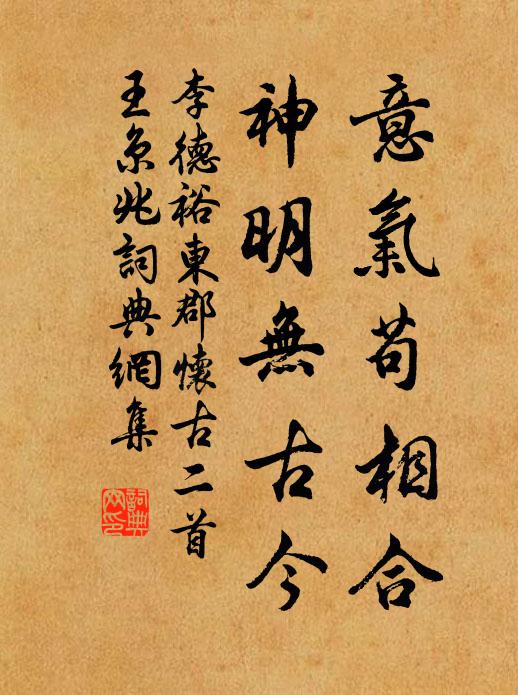 意氣苟相合
神明無古今
李德裕東郡懷古二首
王京兆詞典網集
詞典
网印